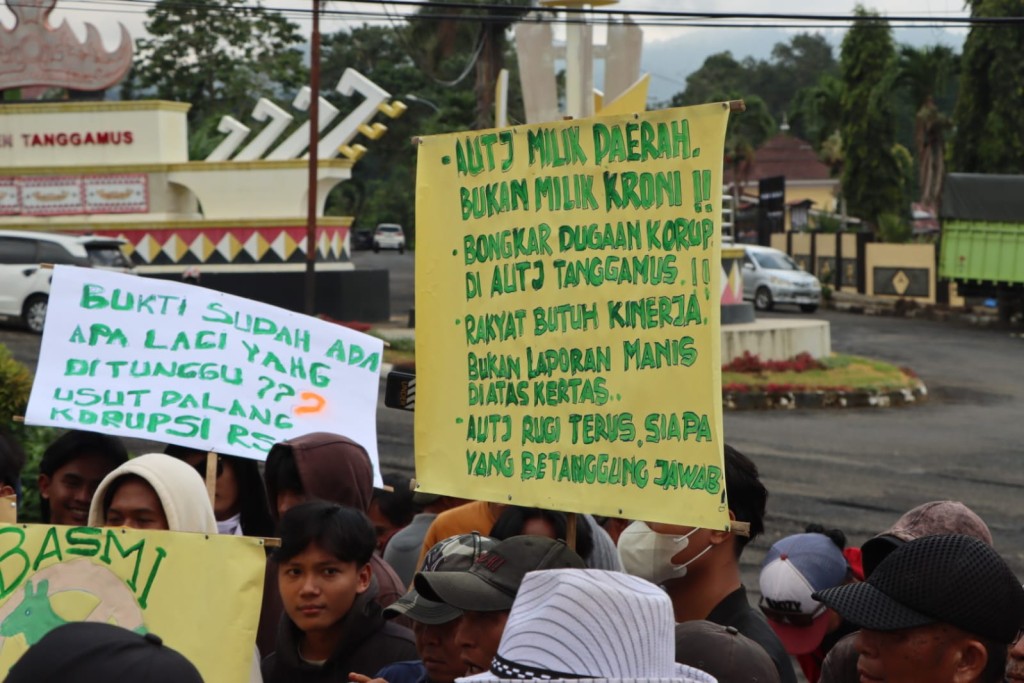 EN TANGGAMUS
• AUTJ MILIK DAERAH.
BUKAN MILIK KRONI !!
• BONGKAR DUGAAN KORUP
DI AUTJ TANGGAMUS.!!
• RAKYAT BUTUH KINERJA.
BUKAN LAPORAN MANIS
DIATAS KERTAS..
• AUTJ RUGI TERUS. SIAPA
YANG BETANGGUNG JAWAB
BUKTI SUDAH ADA
APA LAGI YANG
DITUNGGU ???
USUT DALANG
KORUPSI RS
BASMI